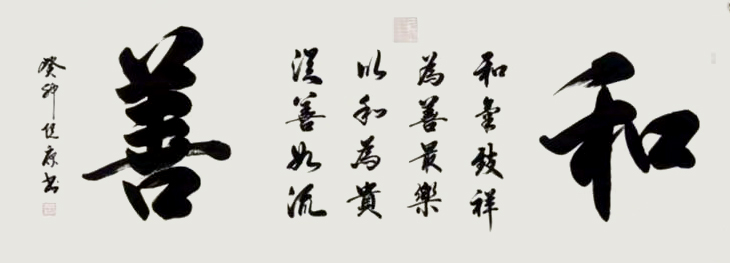 和
和氣致祥
為善最樂
以和為貴
從善如流
善
癸卯康書